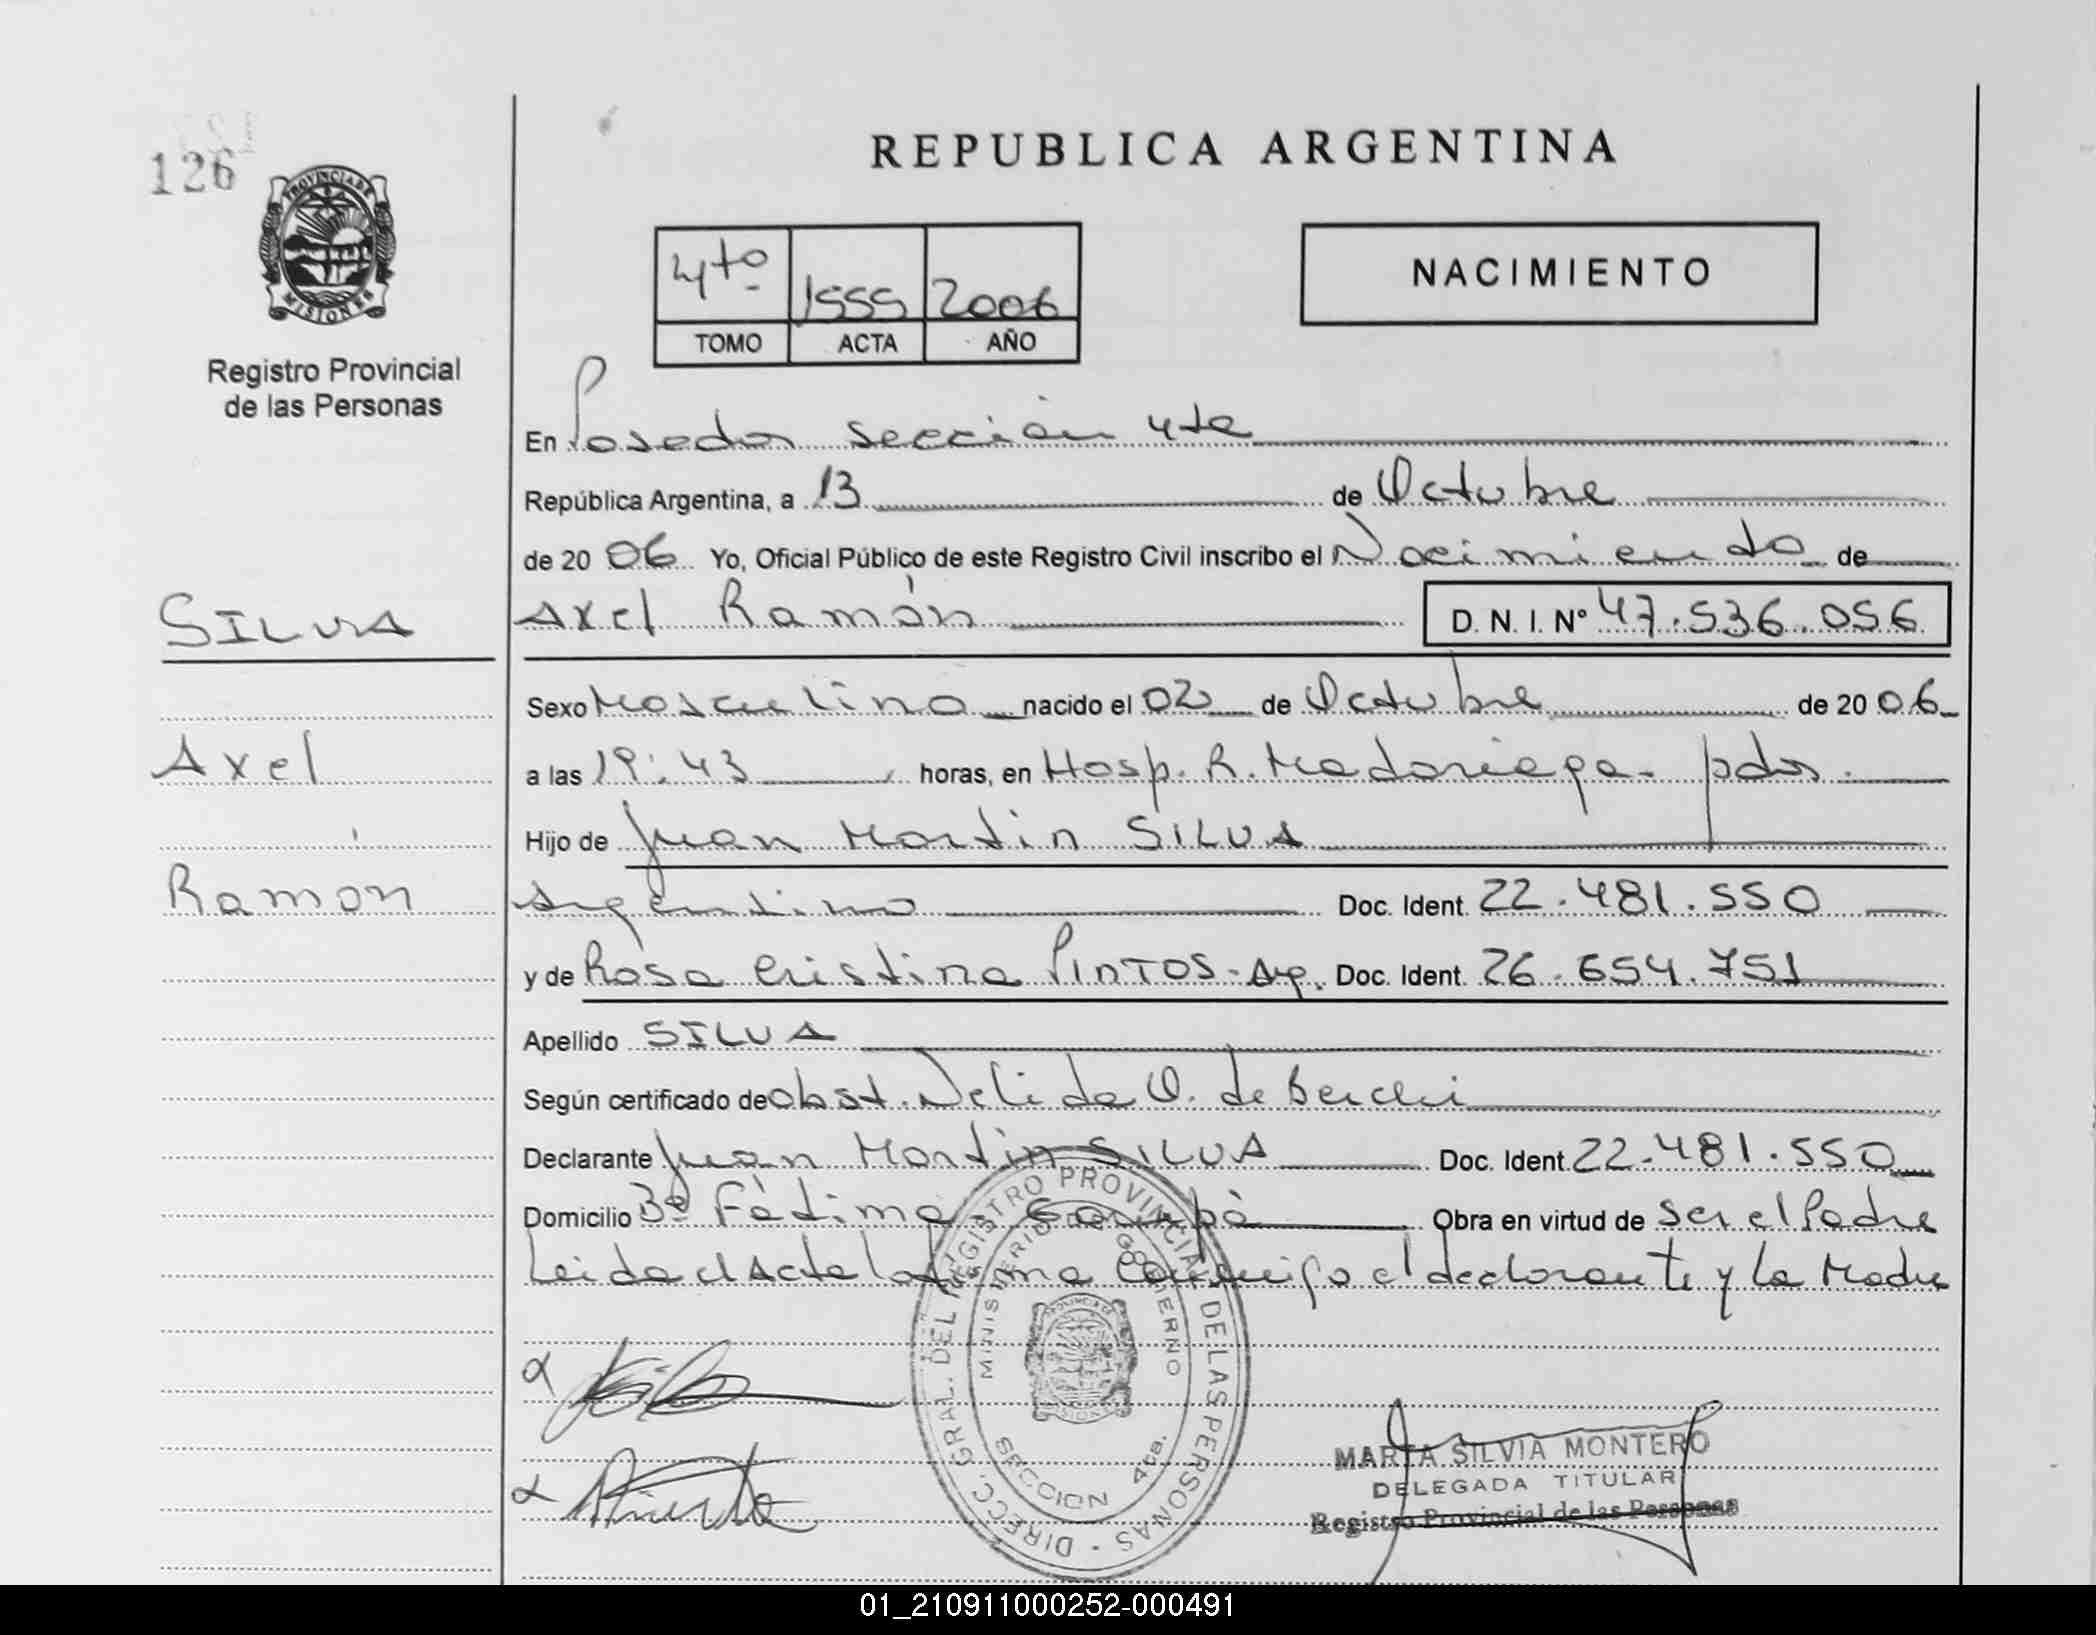 126
PROVINCIA DE
MISIONES
Registro Provincial
de las Personas
REPUBLICA ARGENTINA
4to 1555 2006
TOMO ACTA AÑO
NACIMIENTO
En Posadas sección 4ta
República Argentina, a 13 de Octubre
de 2006 Yo, Oficial Público de este Registro Civil inscribo el Nacimiento de
SILVA
Axel Ramón D. N. I. Nº 47.536.056
Sexo Masculino nacido el 02 de Octubre de 2006
Axel
a las 19:43 horas, en Hosp. R. Madariaga - pdas.
Hijo de Juan Martin SILVA
Ramón
Argentino Doc. Ident. 22.481.550
y de Rosa Cristina PINTOS - Arg. Doc. Ident. 26.654.751
Apellido SILVA
Según certificado de obst. Nelida O. de
Declarante Juan Martin SILVA Doc. Ident. 22.481.550
Domicilio Bº Fátima Garupá Obra en virtud de ser el Padre
Leida el Acta la firma conmigo el declarante y la Madre
DIRECC. GRAL. DEL REGISTRO PROVINCIAL DE LAS PERSONAS
MINISTERIO DE GOBIERNO
SECCION 4ta.
MARTA SILVIA MONTERO
DELEGADA TITULAR
Registro Provincial de las Personas
01_210911000252-000491